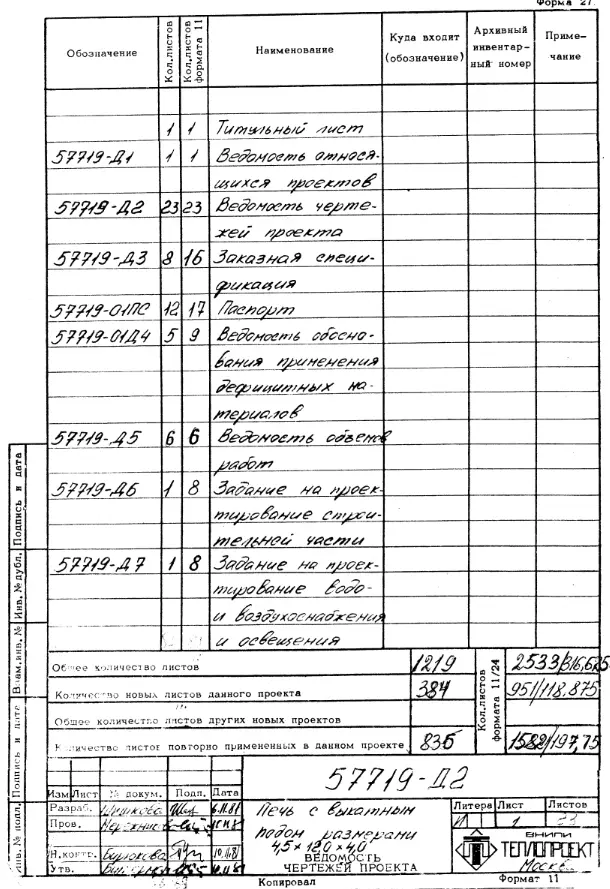 Форма 27.
Обозначение
Кол.листов
Кол.листов формата 11
Наименование
Куда входит (обозначение)
Архивный инвентарный номер
Примечание
1 1 Титульный лист
57719-Д1 1 1 Ведомость относя-
щихся проектов
57719-Д2 23 23 Ведомость черте-
жей проекта
57719-Д3 8 16 Заказная специ-
фикация
57719-01ПС 12 17 Паспорт
57719-01Д4 5 9 Ведомость обосно-
вания применения
дефицитных ма-
териалов
57719-Д5 6 6 Ведомость объемов
работ
57719-Д6 1 8 Задание на проек-
тирование строи-
тельной части
57719-Д7 1 8 Задание на проек-
тирование водо-
и воздухоснабжения
и освещения
Общее количество листов 1219
Кол.листов формата 11/24
2533/316,625
Количество новых листов данного проекта 384 951/118,875
Общее количество листов других новых проектов
Количество листов повторно примененных в данном проекте 835 1582/197,75
Подпись и дата
Инв. № дубл.
Взам.инв. №
Подпись и дата
Инв. № подл.
57719-Д2
Изм Лист № докум. Подп. Дата
Разраб.
Пров.
Н.контр.
Утв.
Печь с выкатным
подом размерами
4,5 × 12,0 × 4,0
ВЕДОМОСТЬ
ЧЕРТЕЖЕЙ ПРОЕКТА
Литера Лист Листов
И 1 23
ВНИПИ
ТЕПЛОПРОЕКТ
Москва
Копировал
Формат 11